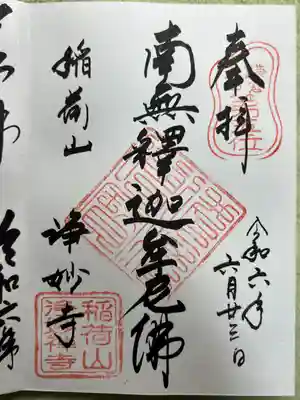 奉拝
令和六年
六月廿三日
南無釋迦牟尼佛
稲荷山
浄妙寺
稲荷山
令和六年